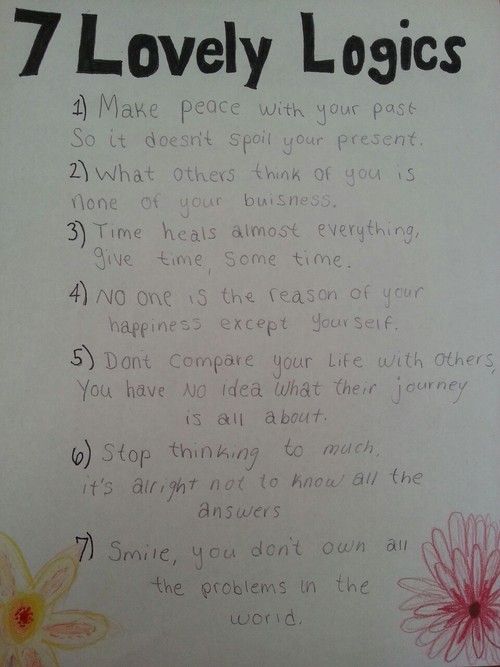 7 Lovely Logics
1) Make peace with your past
So it doesn't spoil your present.
2) What others think of you is
none of your buisness.
3) Time heals almost everything,
give time, some time.
4) No one is the reason of your
happiness except yourself.
5) Dont compare your life with others,
You have no idea what their journey
is all about.
6) Stop thinking to much,
it's alright not to know all the
answers
7) Smile, you don't own all
the problems in the
world.